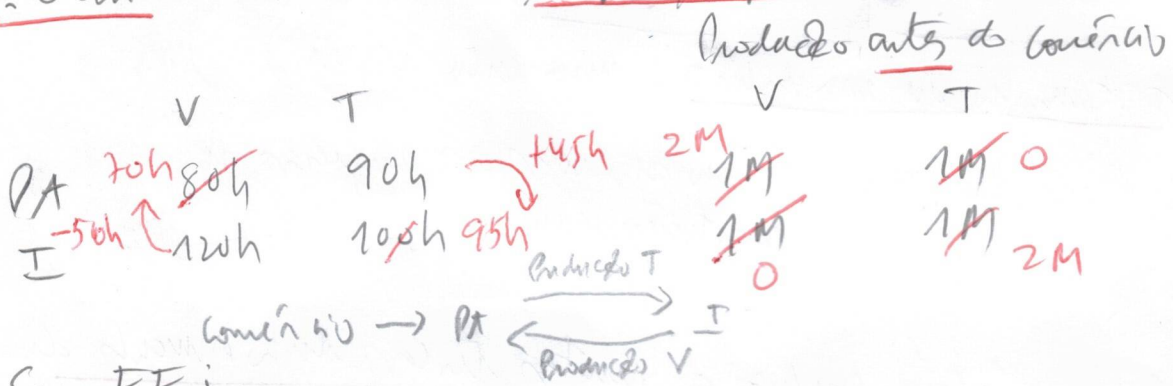 Produção antes do comércio
V T V T
PA 70h 80h 90h +45h 2M 1M 1M 0
I -50h 120h 100h 95h 1M 0 1M 2M
Produção T
Comércio → PA I
Produção V